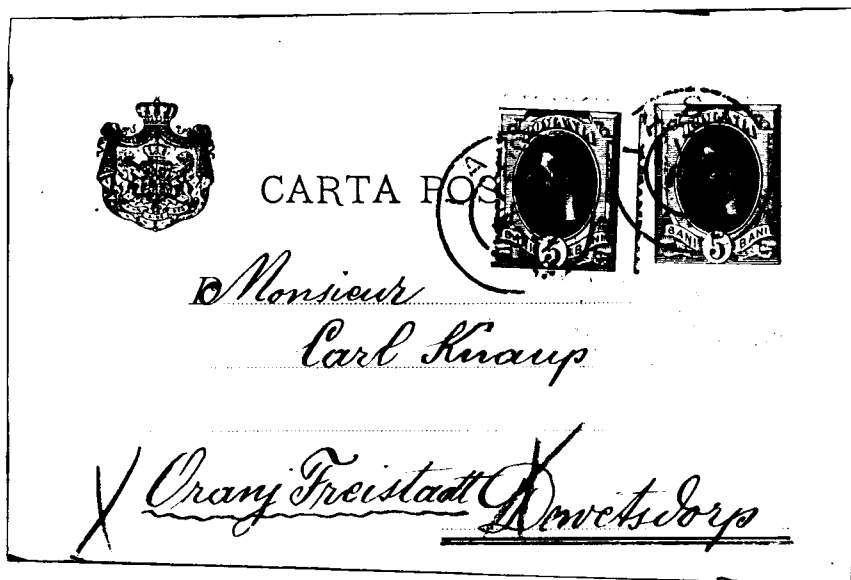 CARTA POS
ROMANIA
BANI 5 BANI
5
D Monsieur
Carl Knaup
Oranj Freistadt Dewetsdorp